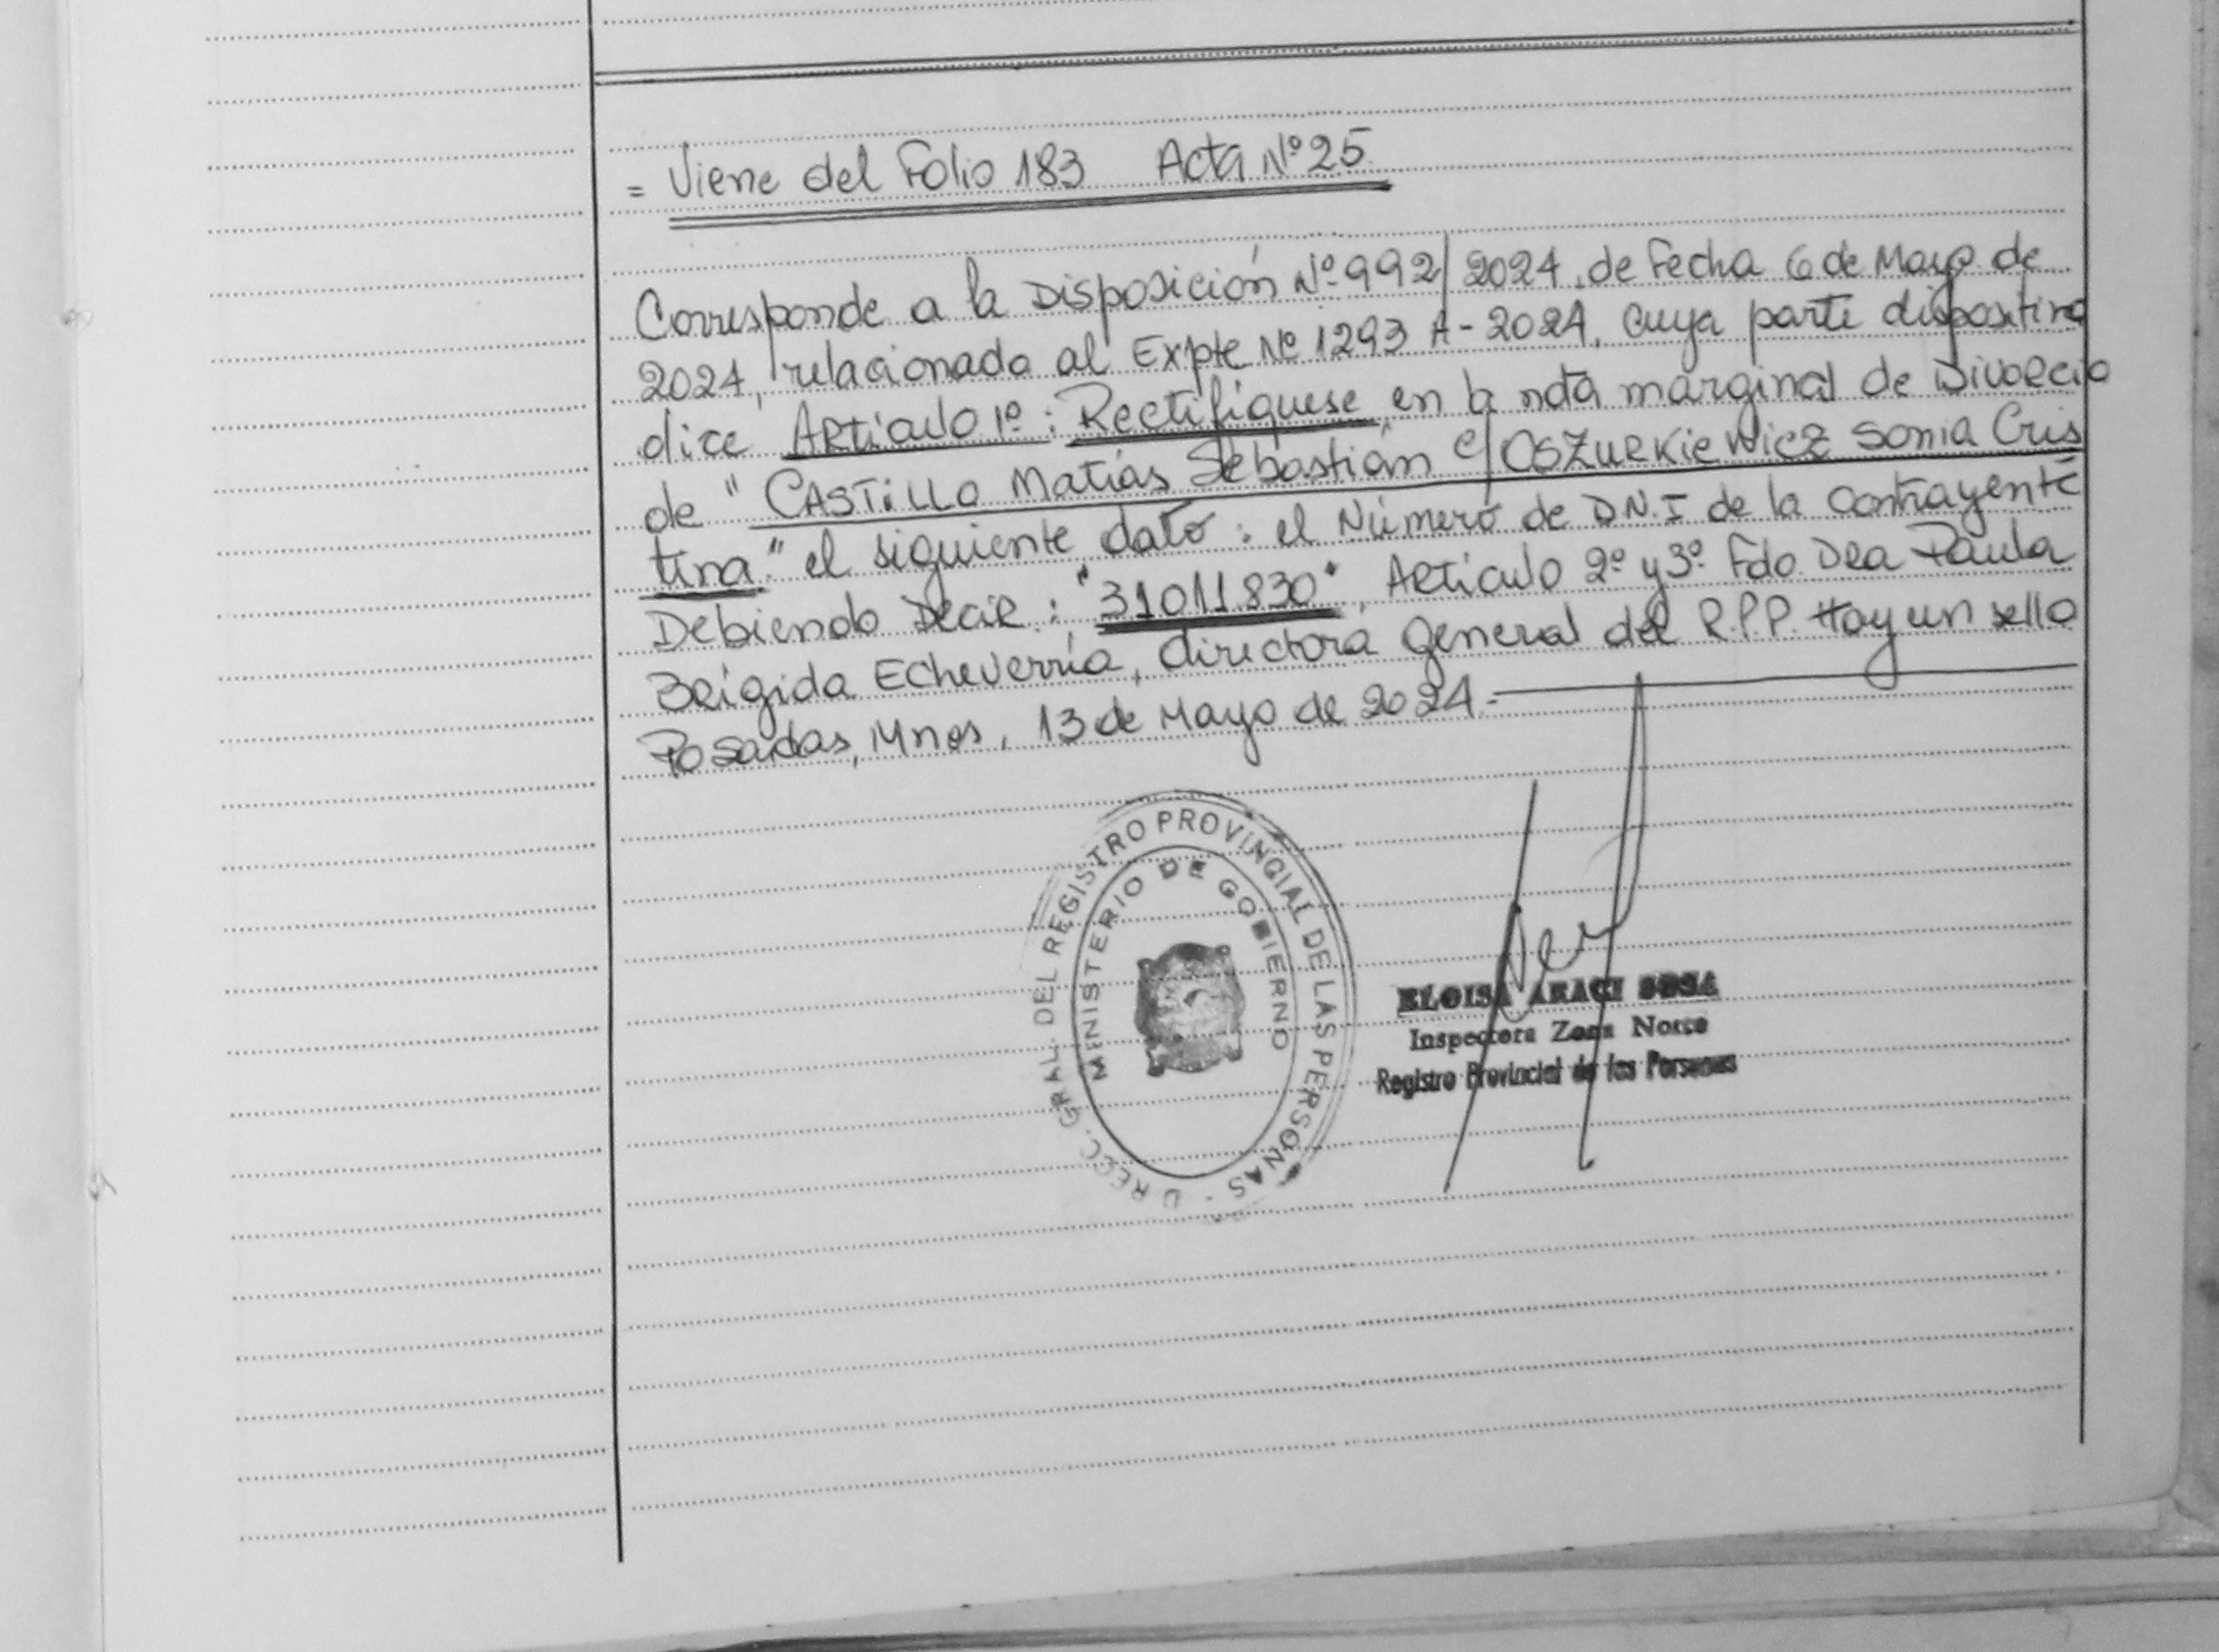 = Viene del Folio 183 Acta Nº 25
Corresponde a la Disposición Nº 992/2024, de Fecha 6 de Mayo de
2024, relacionado al Expte Nº 1293 A-2024, cuya parte dispositiva
dice Artículo 1º: Rectifíquese en la nota marginal de Divorcio
de "CASTILLO Matías Sebastián c/ OSZURKIEWICZ Sonia Cris
tina" el siguiente dato: el Número de D.N.I de la contrayente
Debiendo Decir: "31011830", Artículo 2º y 3º Fdo. Dra Paula
Brígida Echeverría, directora General del R.P.P. Hay un sello
Posadas, Mnes, 13 de Mayo de 2024.-
DIRECC. GRAL. DEL REGISTRO PROVINCIAL DE LAS PERSONAS -
MINISTERIO DE GOBIERNO
ELOISA ARACI SOSA
Inspectora Zona Norte
Registro Provincial de las Personas